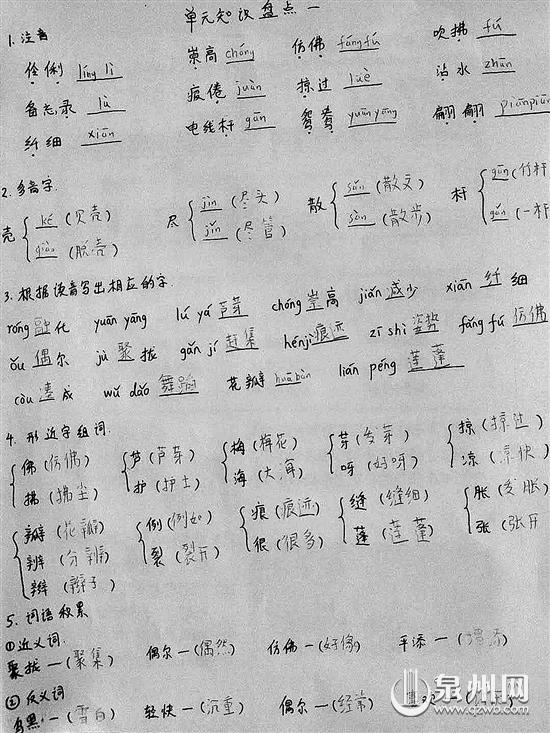 单元知识盘点一
1. 注音
伶俐 líng lì 崇高 chóng 仿佛 fǎng fú 吹拂 fú
备忘录 lù 疲倦 juàn 掠过 lüè 沾水 zhān
纤细 xiān 电线杆 gān 鸳鸯 yuān yāng 翩翩 piān piān
2. 多音字
壳 ké (贝壳) 尽 jìn (尽头) 散 sǎn (散文) 杆 gān (竹杆)
qiào (脱壳) jǐn (尽管) sàn (散步) gǎn (一杆
3. 根据读音写出相应的字.
róng 融化 yuān yāng lú yá 芦芽 chóng 崇高 jiǎn 减少 xiān 纤细
ǒu 偶尔 jù 聚拢 gǎn jí 赶集 hénjì 痕迹 zī shì 姿势 fǎng fú 仿佛
còu 凑成 wǔ dǎo 舞蹈 花瓣 huā bàn lián péng 莲蓬
4. 形近字组词.
佛 (仿佛) 芦 (芦芽) 梅 (梅花) 芽 (发芽) 掠 (掠过)
拂 (拂尘) 护 (护士) 海 (大海) 呀 (好呀) 凉 (凉快)
瓣 (花瓣) 例 (例如) 痕 (痕迹) 缝 (缝细) 胀 (发胀)
辨 (分辨) 裂 (裂开) 很 (很多) 蓬 (莲蓬) 张 (张开)
辫 (辫子)
5. 词语积累
①近义词.
聚拢一(聚集) 偶尔一(偶然) 仿佛一(好像) 平添一(增添)
②反义词
乌黑一(雪白) 轻快一(沉重) 偶尔一(经常)
泉州网
www.qzwb.com